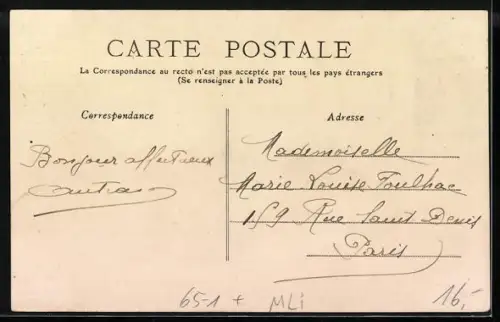 CARTE POSTALE
La Correspondance au recto n'est pas acceptée par tous les pays étrangers
(Se renseigner à la Poste)
Correspondance
Adresse
Bonjour affectueux
Mademoiselle
Marie Louise Foulhac
159 Rue Saint Denis
Paris
65-1 + MLi
16,-